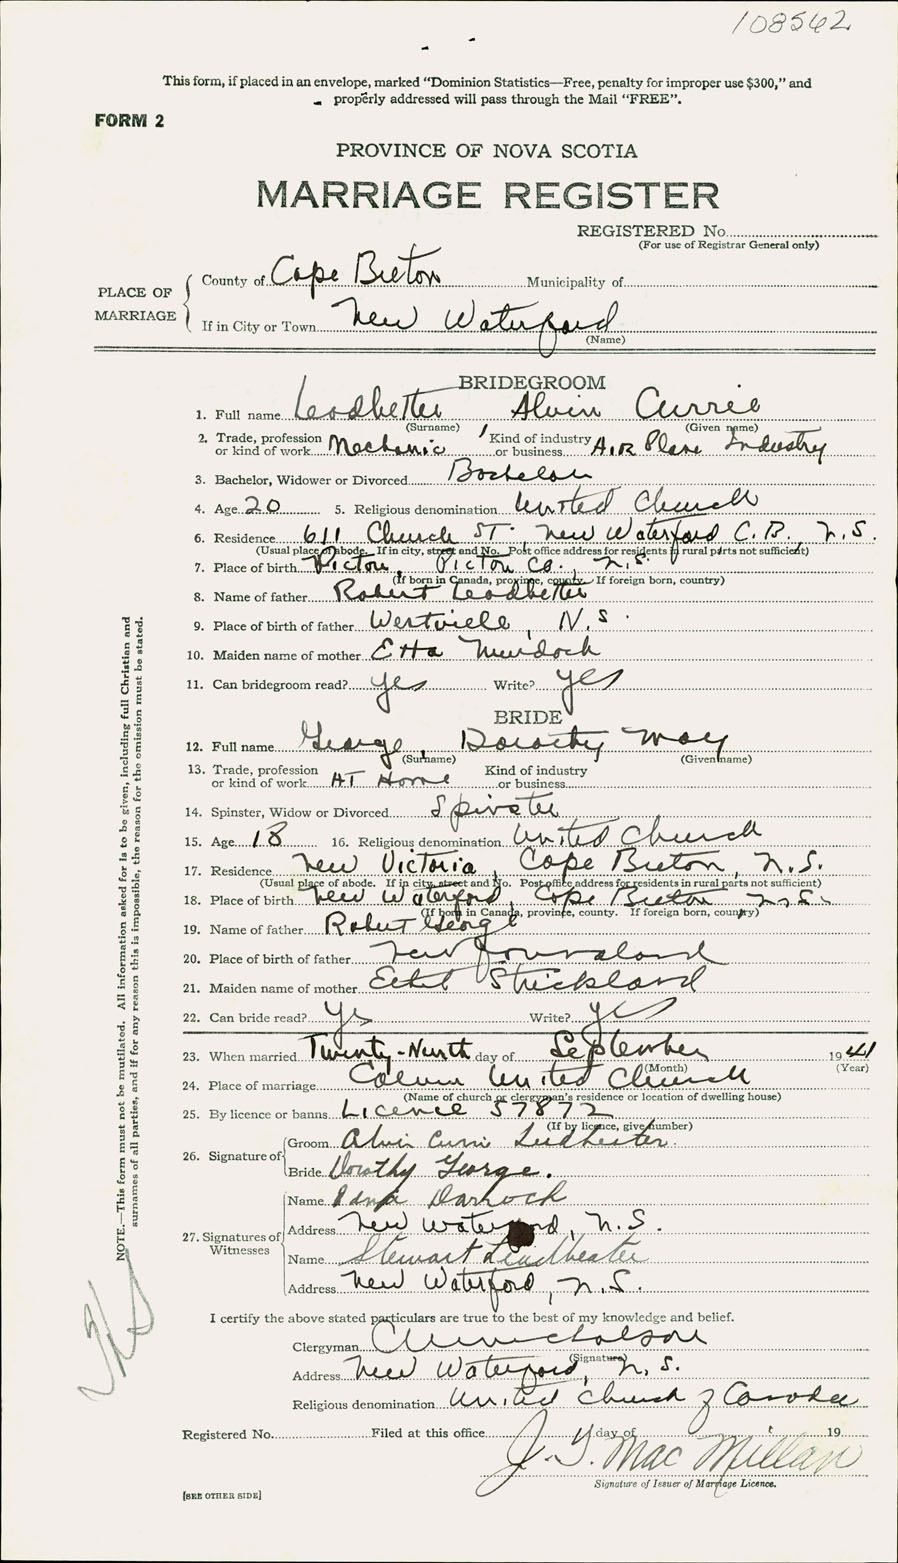 108562
This form, if placed in an envelope, marked "Dominion Statistics—Free, penalty for improper use $300," and
properly addressed will pass through the Mail "FREE".
FORM 2
PROVINCE OF NOVA SCOTIA
MARRIAGE REGISTER
REGISTERED No.
(For use of Registrar General only)
PLACE OF MARRIAGE
County of Cape Breton Municipality of
If in City or Town New Waterford
(Name)
BRIDEGROOM
1. Full name Leadbetter Alvin Currie
(Surname) (Given name)
2. Trade, profession or kind of work Mechanic Kind of industry or business Air Plane Industry
3. Bachelor, Widower or Divorced Bachelor
4. Age 20 5. Religious denomination United Church
6. Residence 611 Church St. New Waterford C.B., N.S.
(Usual place of abode. If in city, street and No. Post office address for residents in rural parts not sufficient)
7. Place of birth Pictou, Pictou Co., N.S.
(If born in Canada, province, county. If foreign born, country)
8. Name of father Robert Leadbetter
9. Place of birth of father Westville, N.S.
10. Maiden name of mother Etta Murdoch
11. Can bridegroom read? yes Write? yes
BRIDE
12. Full name George, Dorothy May
(Surname) (Given name)
13. Trade, profession or kind of work At Home Kind of industry or business
14. Spinster, Widow or Divorced Spinster
15. Age 18 16. Religious denomination United Church
17. Residence New Victoria, Cape Breton, N.S.
(Usual place of abode. If in city, street and No. Post office address for residents in rural parts not sufficient)
18. Place of birth New Waterford, Cape Breton N.S.
(If born in Canada, province, county. If foreign born, country)
19. Name of father Robert George
20. Place of birth of father Newfoundland
21. Maiden name of mother Ethel Strickland
22. Can bride read? Yes Write? yes
23. When married Twenty-Ninth day of September 1941
(Month) (Year)
24. Place of marriage Calvin United Church
(Name of church or clergyman's residence or location of dwelling house)
25. By licence or banns Licence 57872
(If by licence, give number)
26. Signature of
Groom Alvin Currie Leadbeater
Bride Dorothy George.
27. Signatures of Witnesses
Name Darroch
Address New Waterford, N.S.
Name Stewart Leadbeater
Address New Waterford, N.S.
I certify the above stated particulars are true to the best of my knowledge and belief.
Clergyman Nicholson
(Signature)
Address New Waterford, N.S.
Religious denomination United Church of Canada
Registered No. Filed at this office day of 19
J. G. MacMillan
Signature of Issuer of Marriage Licence.
[SEE OTHER SIDE]
NOTE.—This form must not be mutilated. All information asked for is to be given, including full Christian and
surnames of all parties, and if for any reason this is impossible, the reason for the omission must be stated.